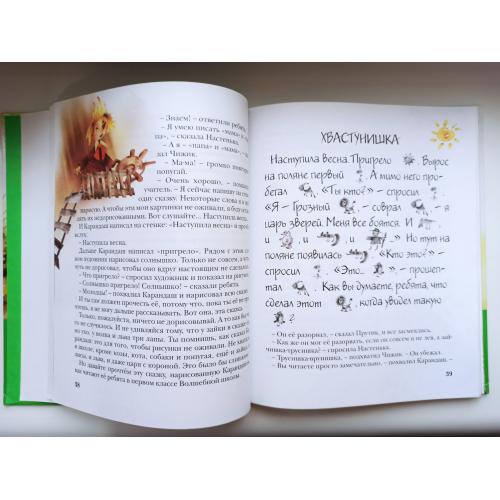 – Знаем! – ответили ребята.
– Я умею писать «мама» и «па-
па», – сказала Настенька.
– А я – «папа» и «мама», –
сказал Чижик.
– Ма-ма! – громко повторил
попугай.
– Очень хорошо, –
учитель. – Я сейчас напишу
одну сказку. Некоторые слова я в ней
нарисую. А чтобы эти мои картинки не оживали, я буду
ять их недорисованными. Вот слушайте... Наступила весна.
И Карандаш написал на стенке: «Наступила весна» и
– Наступила весна.
Дальше Карандаш написал «пригрело». Рядом с этим
вом художник нарисовал солнышко. Только не совсем, а
чуть не дорисовал, чтобы оно вдруг настоящим не сделалось.
– Что пригрело? – спросил художник.
– Солнышко пригрело! Солнышко! – сказали ребята.
– Молодцы! – похвалил Карандаш и нарисовал всю сказку.
И ты должен прочесть её, потому что её очень легко прочесть,
и я не могу дальше рассказывать. Вот она, эта сказка.
Только, пожалуйста, ничего не дорисовывай! А то как бы чего
не случилось. И не удивляйся тому, что у зайки в сказке
ухо, а у льва три лапы. Ты помнишь, как сказал
рандаш: это для того, чтобы рисунки не оживали. Не
в школе, кроме козы, кота, собаки и попугая, ещё и
лисы, и льва, и даже царя с короной. Это было бы слишком
Но давайте прочтём эту сказку, нарисованную Карандашом,
как читают её ребята в первом классе Волшебной школы.
38
ХВАСТУНИШКА
Наступила весна. Пригрело . Вырос
на поляне первый . А мимо него про-
бегал . «Ты кто?» – спросил .
«Я – Грозный », – соврал . – я
царь зверей. Меня все боятся. И ,
и , и , и » Но тут на
поляне появилась . «Кто это?» –
спросил . «Это... » – прошеп-
тал . Как вы думаете, ребята, что
сделал этот , когда увидел такую
?
– Он её разорвал, – сказал Прутик, и все засмеялись.
– Как же он мог её разорвать, если он совсем и не лев, а зай-
чишка-трусишка? – спросила Настенька.
– Трусишка-врунишка, – подхватил Чижик. – Он убежал.
– Вы читаете просто замечательно, – похвалил Карандаш. –
39